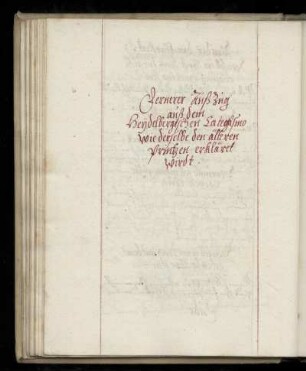 Fernerer Außzug
auß dem
Heydelbergischen Catechismo
wie derselbe den älteren
Printzen erkläret
wirdt.